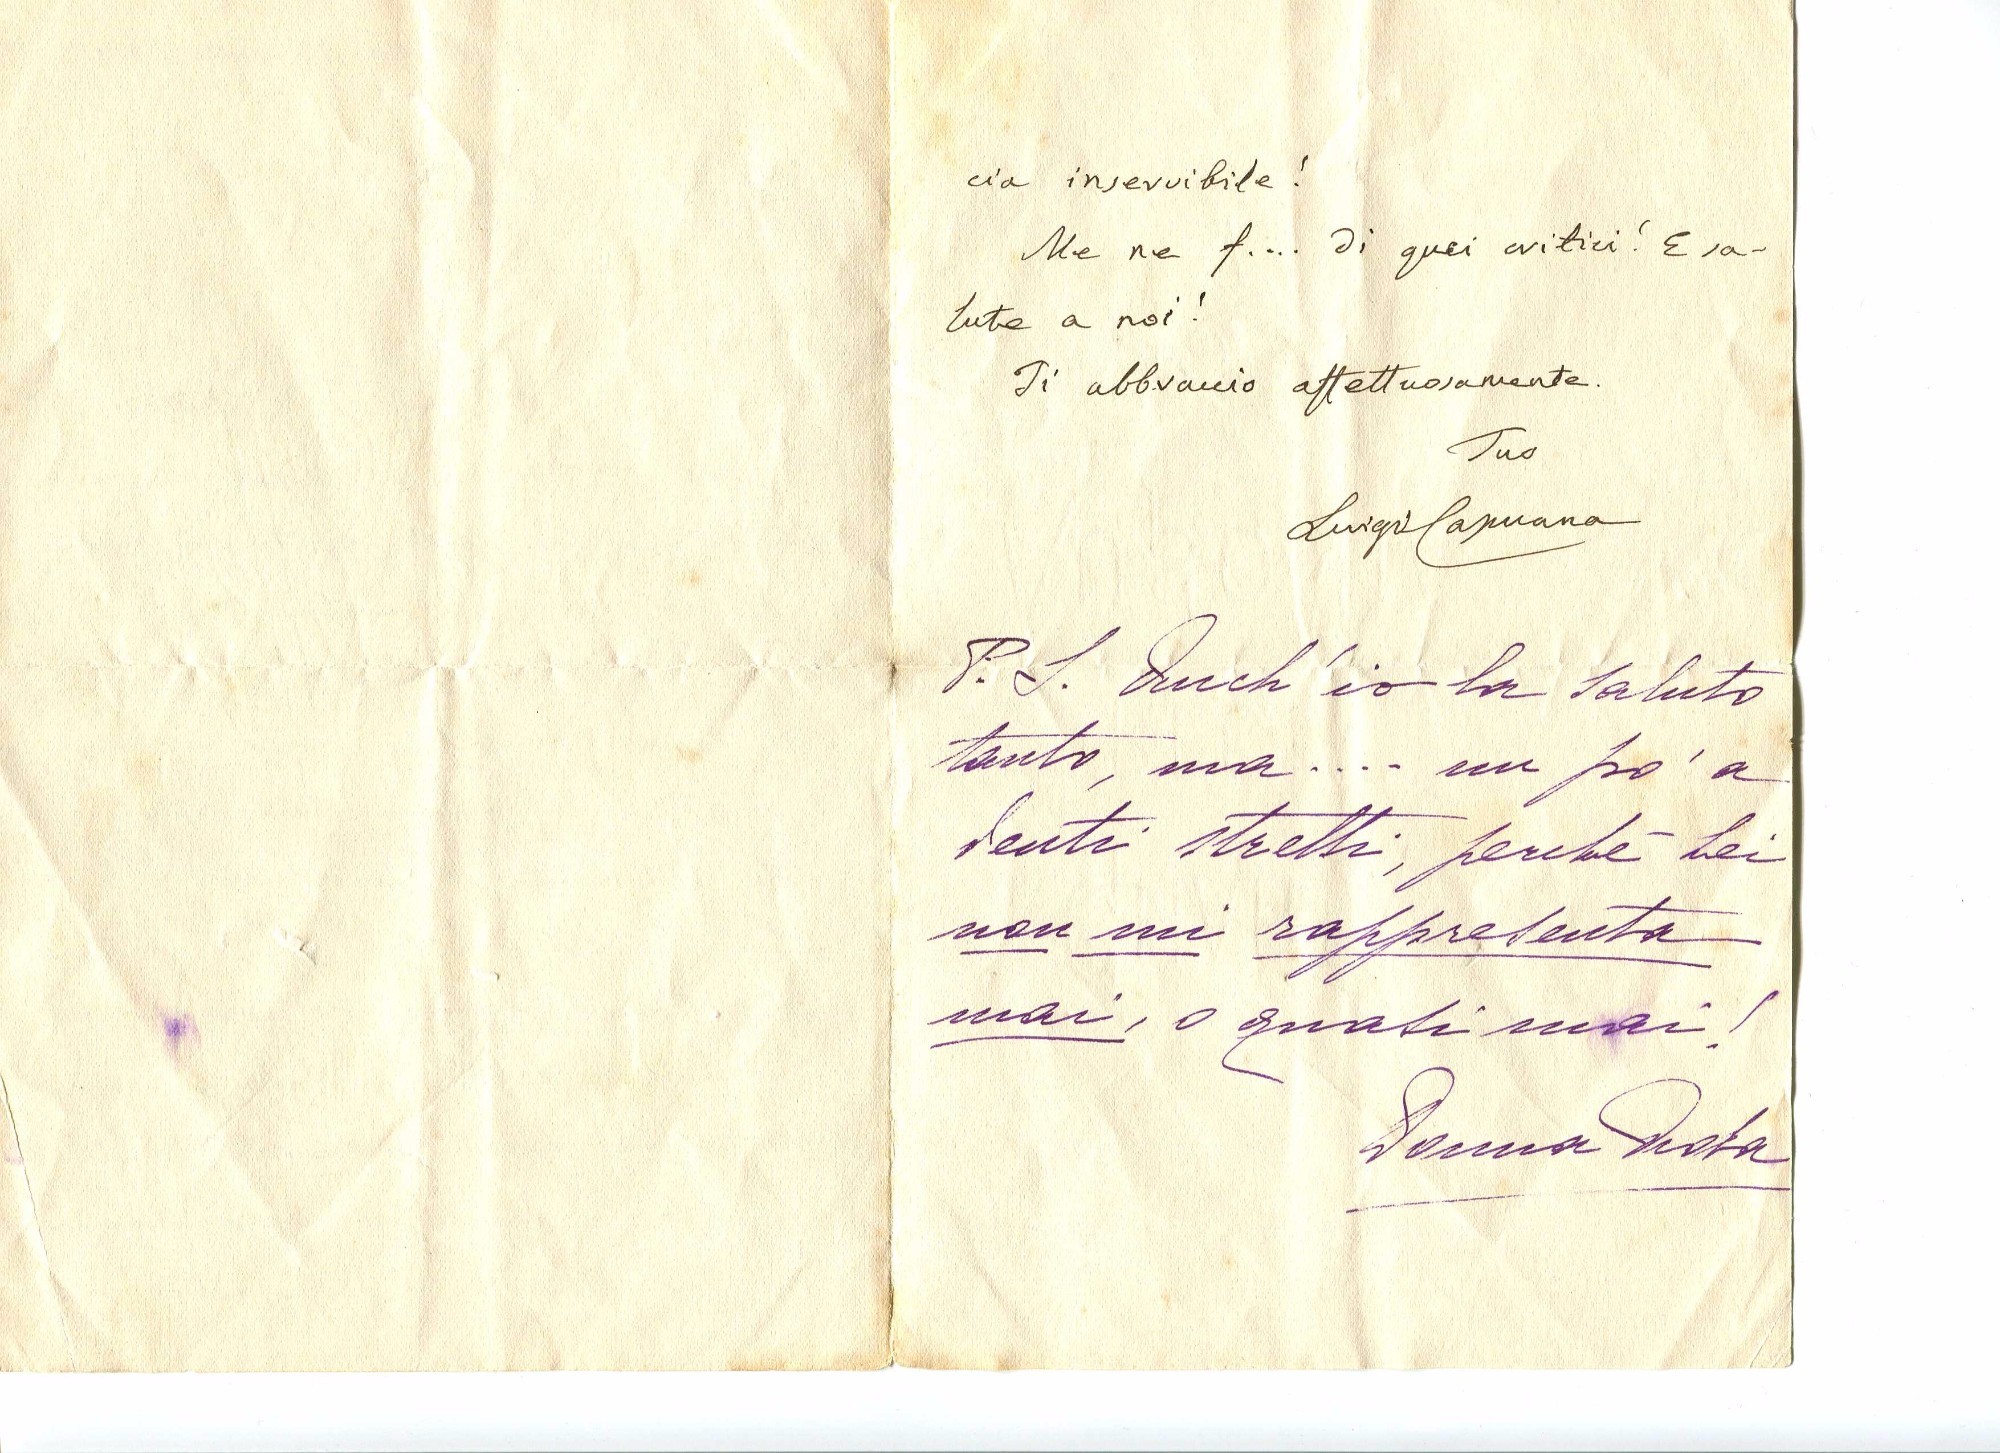 cia inservibile!
Me ne f.... di quei critici! E sa-
lute a noi!
Ti abbraccio affettuosamente.
Tuo
Luigi Capuana
P. S. Anch'io la saluto
tanto, ma.... un po' a
denti stretti, perchè Lei
non mi rappresenta
mai, o quasi mai!
Donna